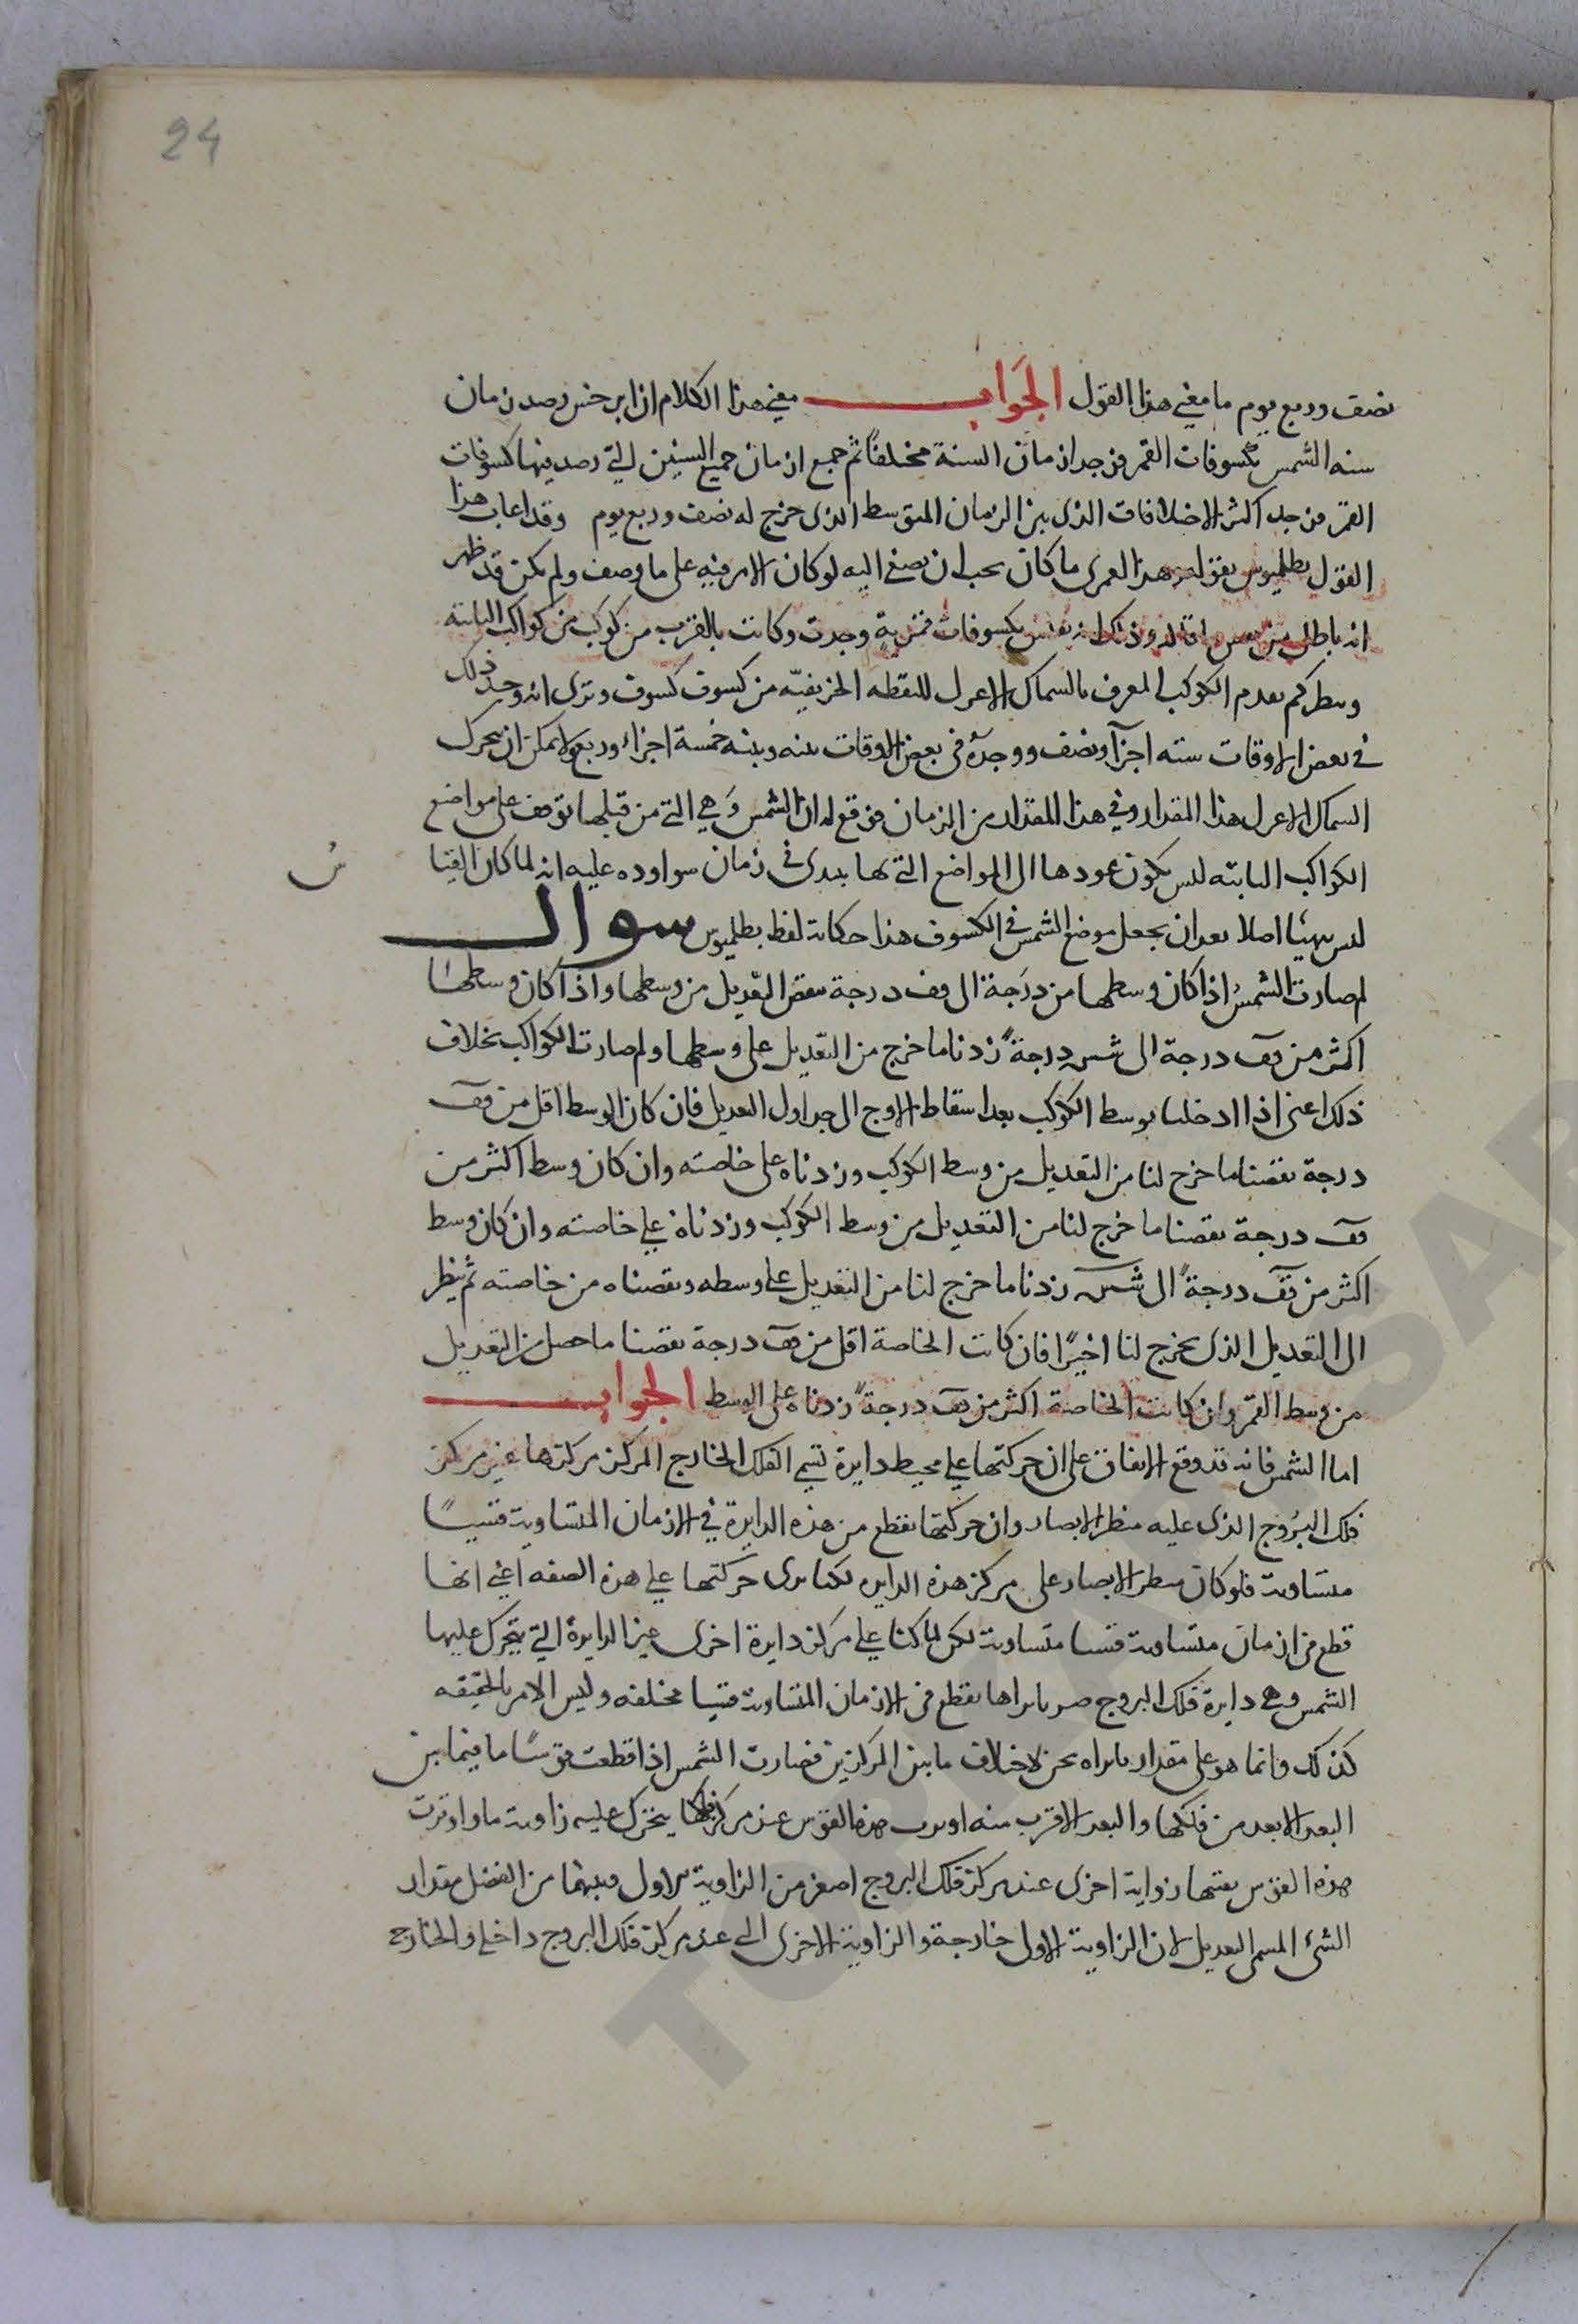 24
نصف وربع يوم ما معنى هذا القول الجَواب معنى هذا الكلام ان ابرخس رصد زمان
سنه الشمس بكسوفات القمر فوجد ازمان السنة مختلفاً ثم جمع ازمان جميع السنين التي رصد فيها كسوفات
القمر فوجد اكثر الاختلافات الذي بين الزمان المتوسط الذي خرج له نصف وربع يوم وقد اعاب هذا
القول بطلميوس بقوله هذا العمرى ما كان يجب ان يصغى اليه لو كان الامر فيه على ما وصف ولم يكن قد ظهر
انه باطل من نفس ما قاله وذلك انه يقيس بكسوفات قمرية وجدت وكانت بالقرب من كوكب من كواكب الثابته
وينظر كم بعدم الكوكب المعرف بالسماك الاعزل للنقطه الخريفيّه من كسوف كسوف ونرى انه وجد ذلك
في بعض الاوقات سته اجزآ ونصف ووجدهُ في بعض الاوقات بينه وبينه خمسة اجزاء وربع ولا يمكن ان يتحرك
السماك الاعزل هذا المقدار وفي هذا المقدار من الزمان فوقع له ان الشمس وَهي التي من قبلها توقف على مواضع
الكواكب الثابته ليس يكون عودها الى المواضع التي لها بيدى في زمان سوا وده عليه انه لما كان القيا
س
ليس يتهيأ اصلا بعد ان يجعل موضع الشمس في الكسوف هذا حكاية لفظ بطلميوس سوال
لم صارت الشمسُ اذا كان وسطها من درَجة الى قف درجة نقص التعديل من وسطها واذا كان وسطها
اكثر من قف درجة الى شس درجةً زدنا ما خرج من التعديل على وسطها ولم صارت الكواكب بخلاف
ذلك اعنى اذا ادخلنا بوسط الكوكب بعد اسقاط الاوج الى جداول التعديل فان كان الوسط اقل من قف
درجة نقصنا ما خرج لنا من التعديل من وسط الكوكب وزدناه على خاصته وان كان وسط اكثر من
قف درجة نقصنا ما خرج لنا من التعديل من وسط الكوكب وزدناه على خاصته وان كان وسط
اكثر من قف درجةً الى شس زدنا ما خرج لنا من التعديل على وسطه ونقصناه من خاصته ثم ينظر
الى التعديل الذي يخرج لنا اخيرًا فان كانت الخاصة اقل من قف درجة نقصنا ما حصل من التعديل
من وسط القمر وان كانت الخاصة اكثر من قف درجةً زدناه على الوسط الجواب
اما الشمس فانه قد وقع الاتفاق على ان حركتها على محيط دايرة تسمى الفلك الخارج المركز مركزها غير مركز
فلك البرُوج الذي عليه منظر الابصار وان حركتها تقطع من هذه الدايرة في الازمان المتساوية قسيًا
متساوية فلو كان منظر الابصار على مركز هذه الدايره لكنا نرى حركتها على هذه الصفه اعنى انها
قطع في ازمان متساوية قسيا متساوية لكن لما كنا على مركز دايرة اخرى غير الدايرة التي يتحرك عليها
الشمس وهي دايرة فلك البروج صرنا نراها تقطع في الازمان المتساوية قسيا مختلفه وليس الامر بالحقيقه
كذلك وانما هو على مقدار ما نراه نحن لاختلاف ما بين المركزين فصارت الشمس اذا قطعت قوسًا ما فيما بين
البعد الابعد من فلكها والبعد الاقرب منه اوترت هذه القوس عند مركز فلكها يتحرك عليه زاوية ما واوترت
هذه القوس بعينها زواية اخرى عند مركز فلك البروج اصغر من الزاوية الاولى وبينهما من الفضل مقدار
الشئ المسمى التعديل لان الزاوية الاولى خارجة والزاوية الاخرى التي عند مركز فلك البروج داخله والخارجه